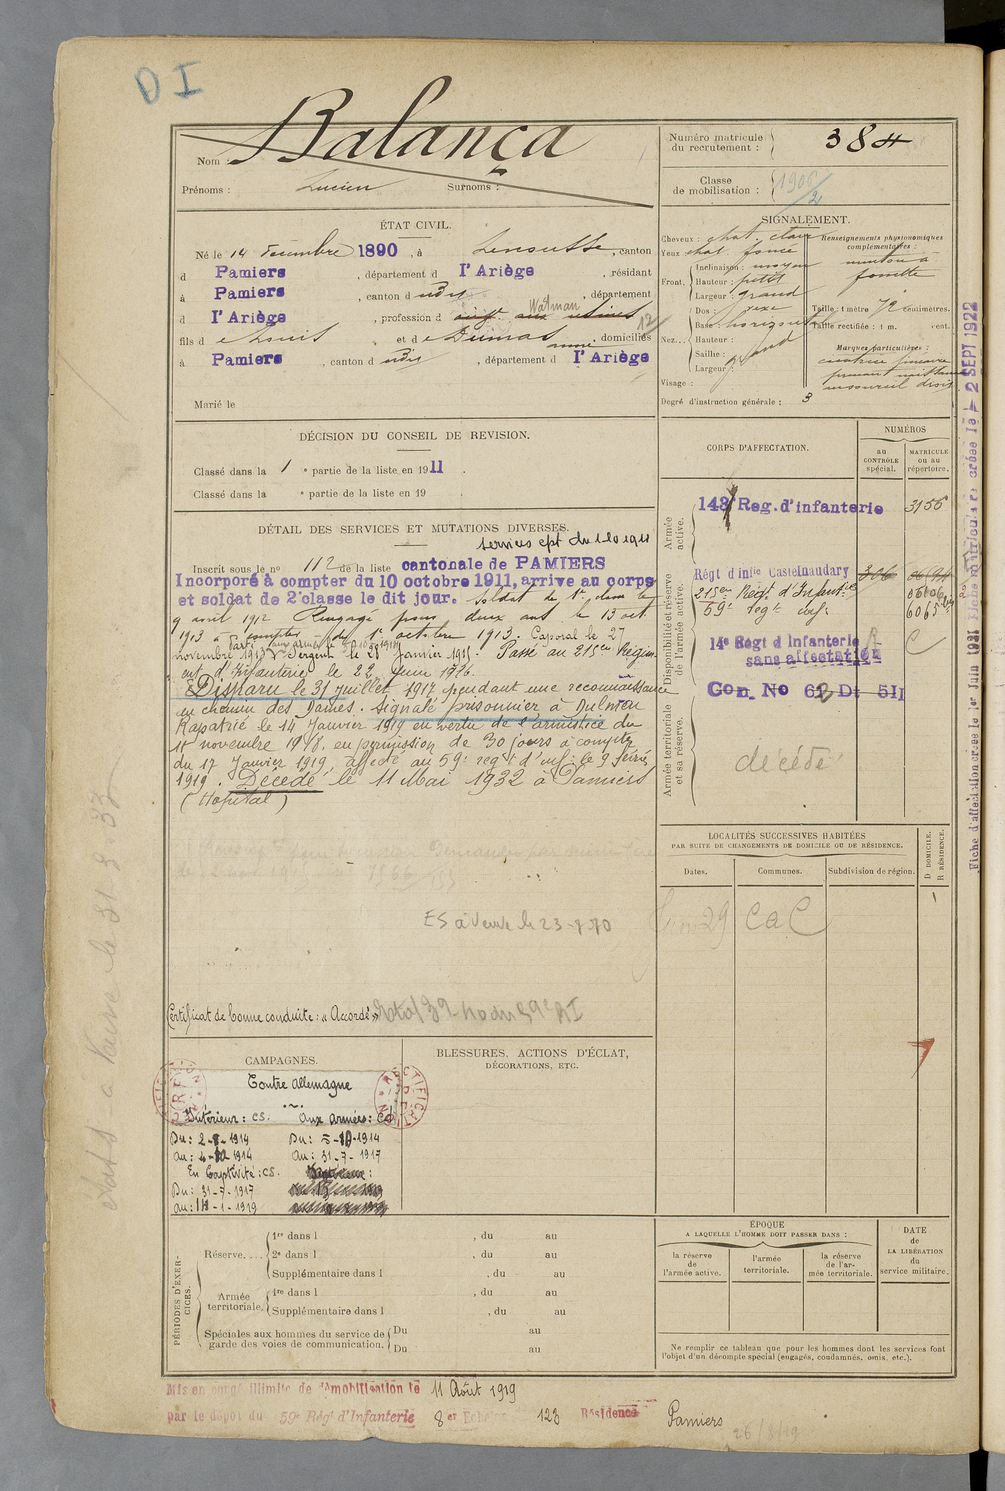 D I
Nom : Balança
Prénoms : Lucien Surnoms :
Numéro matricule du recrutement : 384
Classe de mobilisation :
ÉTAT CIVIL.
Né le 14 décembre 1890, à canton
d Pamiers, département d I'Ariège, résidant
à Pamiers, canton d udt, département
d I'Ariège, profession d Watman
fils d e Louis et d e Dumas anne, domiciliés
à Pamiers, canton d udt, département d I'Ariège
Marié le
SIGNALEMENT.
Cheveux : chat. clair
Yeux chat. foncé
Front. Inclinaison : moyen
Hauteur : petit
Largeur : grand
Nez... Dos :
Base : horizontal
Hauteur :
Saillie :
Largeur :
Visage :
Renseignements physionomiques complémentaires :
menton à
fossette
Taille : 1 mètre 72 centimètres.
Taille rectifiée : 1 m. cent.
Marques particulières :
cicatrice
sourcil droit
Degré d'instruction générale : 3
DÉCISION DU CONSEIL DE REVISION.
Classé dans la 1 e partie de la liste en 1911.
Classé dans la e partie de la liste en 19
CORPS D'AFFECTATION.
NUMÉROS
au CONTRÔLE spécial.
MATRICULE ou au répertoire.
Armée active.
143 Reg. d'infanterie 3156
Disponibilité et réserve de l'armée active.
Régt d'infie Castelnaudary
215eu Régt d'Infant.ie
59e regt inf: 6065
14e Régt d Infanterie
sans affectation
Armée territoriale et sa réserve.
décédé
DÉTAIL DES SERVICES ET MUTATIONS DIVERSES.
services cpt du 1-10-1911
Inscrit sous le no 112 de la liste cantonale de PAMIERS
Incorporé à compter du 10 octobre 1911, arrive au corps
et soldat de 2e classe le dit jour. Soldat de 1e classe le
9 avril 1912 Rengagé pour deux ans le 13 oct
1913 à compter du 1e octobre 1913. Caporal le 27
novembre 1913 Sergent le 21 janvier 1915. Passé au 215eu Régim
ent d'Infanterie le 22 juin 1916.
Disparu le 31 juillet 1917 pendant une reconnaissance
au chemin des Dames. Signalé prisonnier à Dulmen
Rapatrié le 14 Janvier 1919 en vertu de l'armistice du
11 novembre 1918, en permission de 30 jours à compter
du 17 Janvier 1919, affecté au 59e regt d'inf: le 9 février
1919. Décédé le 11 Mai 1932 à Pamiers
(Hopital)
Certificat de bonne conduite : « Accordé »
LOCALITÉS SUCCESSIVES HABITÉES
PAR SUITE DE CHANGEMENTS DE DOMICILE OU DE RÉSIDENCE.
Dates. Communes. Subdivision de région. D DOMICILE. R RÉSIDENCE.
CAMPAGNES.
Contre Allemagne
Intérieur : CS. Aux armées : CD
Du : 2-8-1914 Du : 5-10-1914
au : 4-10-1914 Au : 31-7-1917
En Captivité : CS.
Du : 31-7-1917
au : 14-1-1919
BLESSURES, ACTIONS D'ÉCLAT,
DÉCORATIONS, ETC.
PÉRIODES D'EXERCICES.
Réserve.... 1re dans l , du au
2e dans l , du au
Supplémentaire dans l , du au
Armée territoriale. 1re dans l , du au
Supplémentaire dans l , du au
Spéciales aux hommes du service de garde des voies de communication. Du au
Du au
ÉPOQUE
A LAQUELLE L'HOMME DOIT PASSER DANS :
la réserve de l'armée active.
l'armée territoriale.
la réserve de l'armée territoriale.
DATE de LA LIBÉRATION du service militaire.
Ne remplir ce tableau que pour les hommes dont les services font
l'objet d'un décompte spécial (engagés, condamnés, omis, etc.).
Mis en congé illimité de démobilisation le 11 Août 1919
par le dépôt du 59e Régt d'Infanterie 8er Echelon 123 Résidence Pamiers
26/8/19